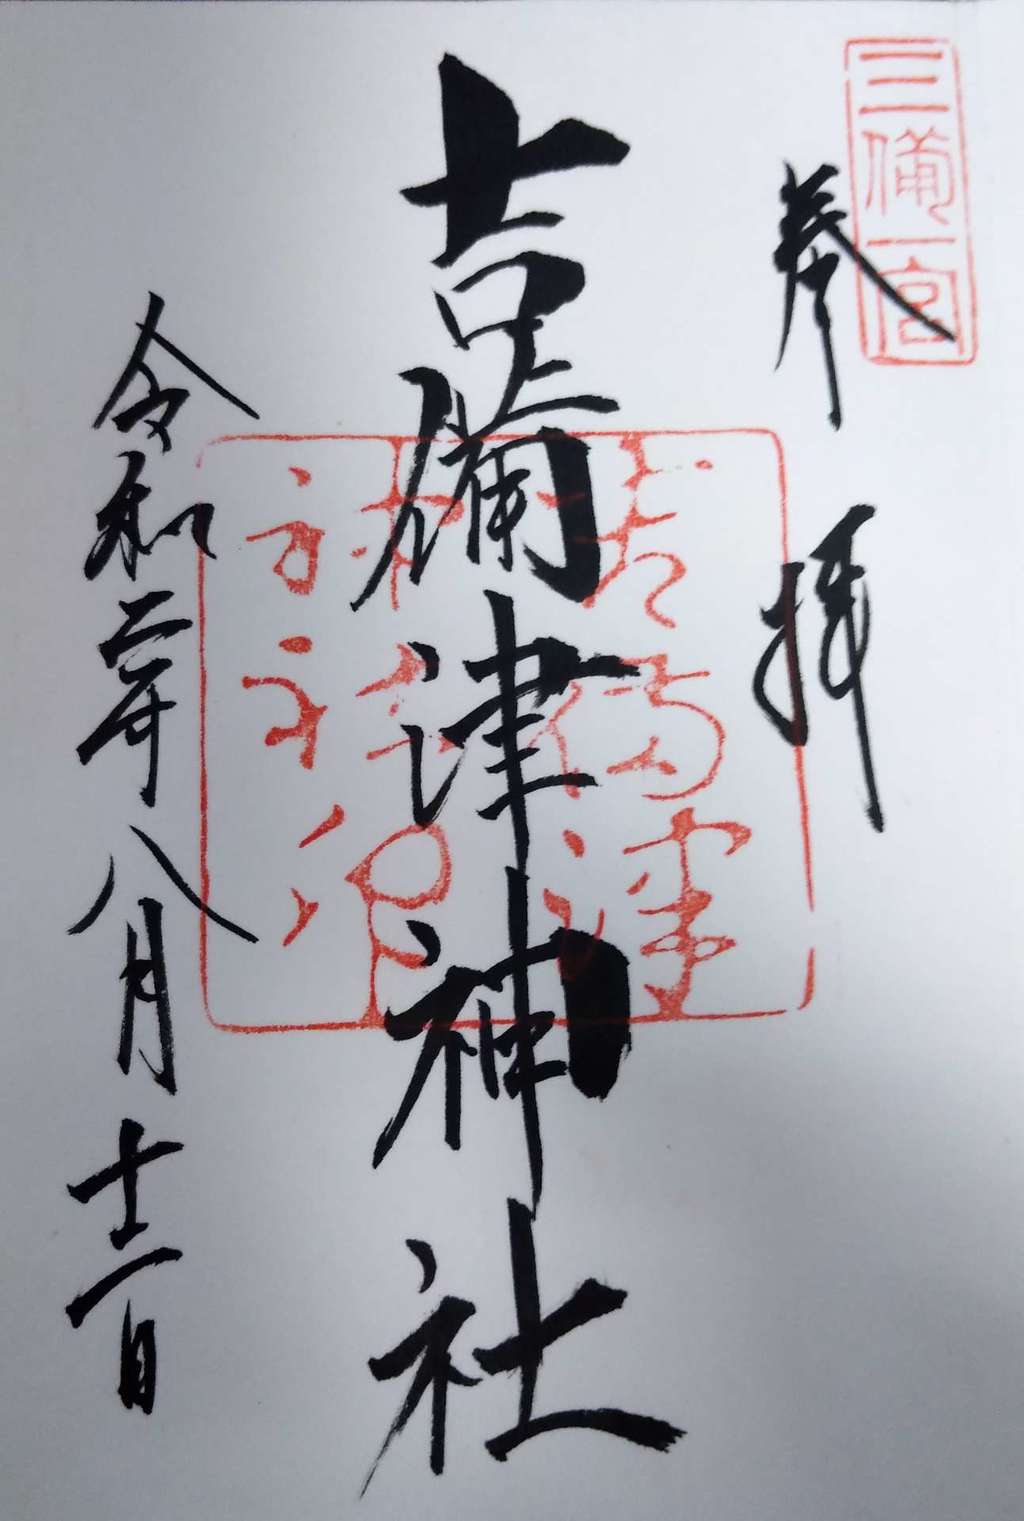 三備一宮
奉拝
吉備津神社
吉備津
令和二年八月十二日